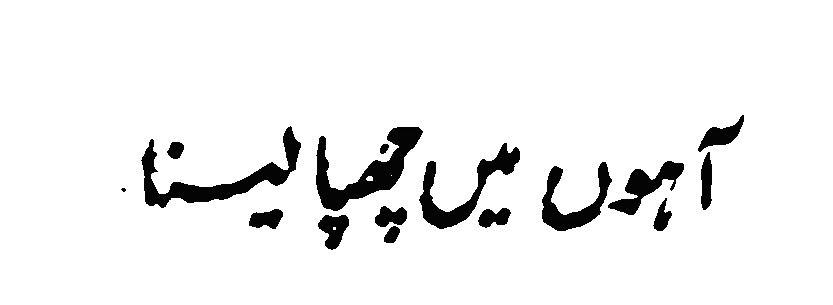 آہوں میں چھپا لینا